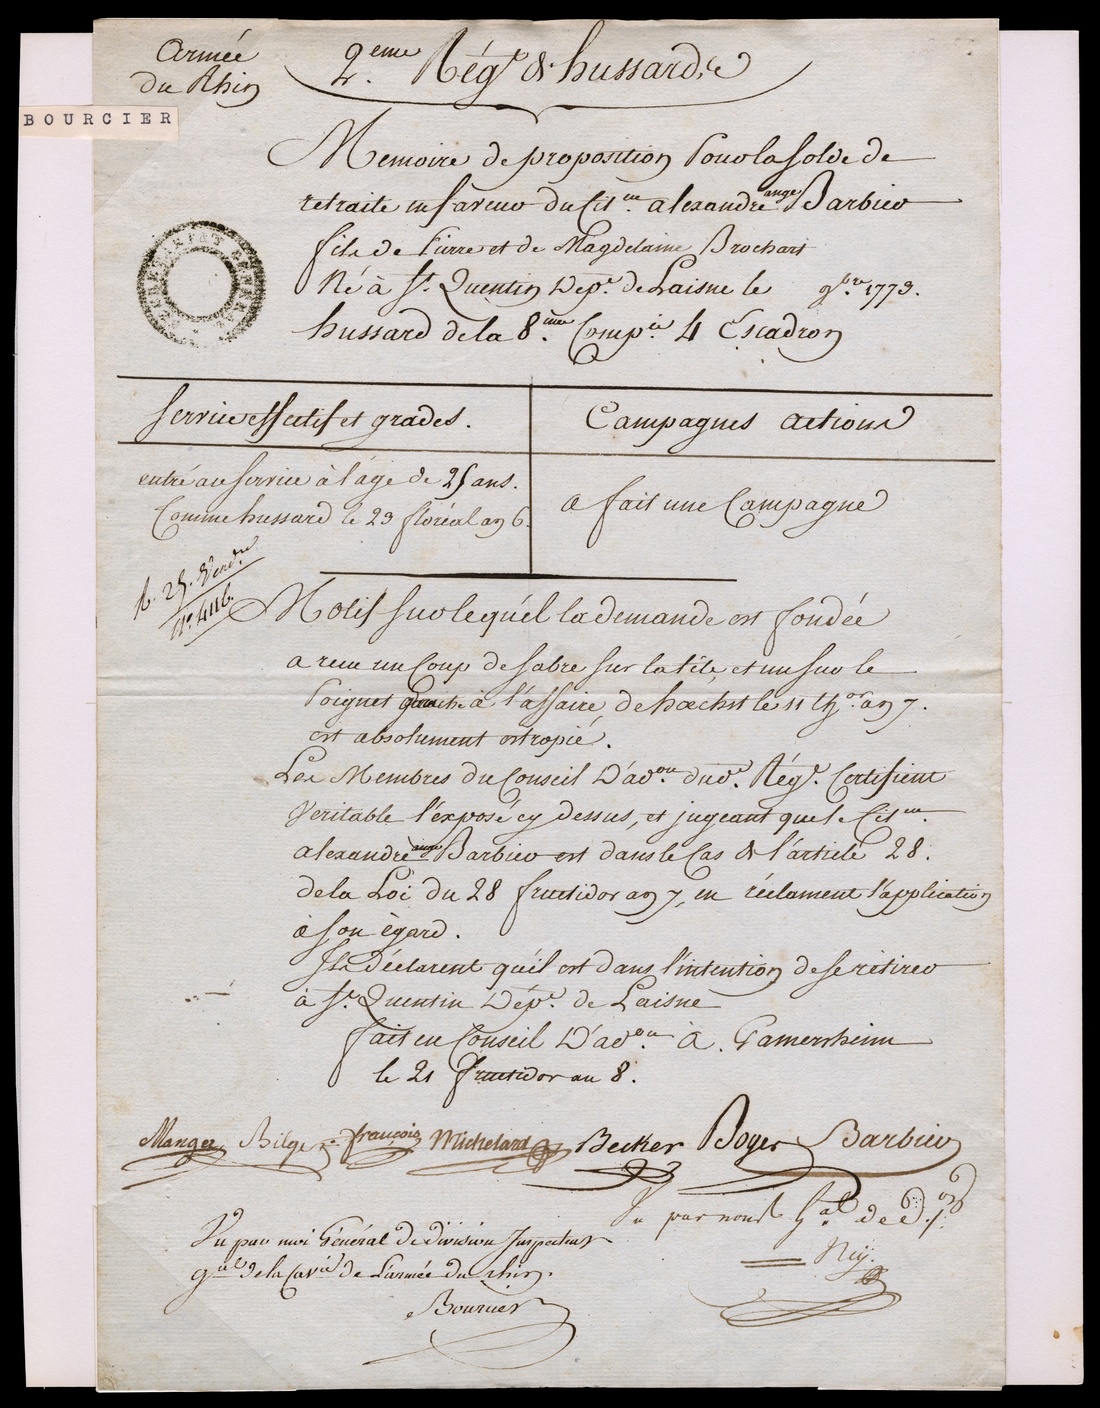 Armée
du Rhin
2.eme Régt de hussards
BOURCIER
Memoire de proposition Pour la solde de
retraite en faveur du Cit.en alexandre ange Barbier
fils de Pierre et de Magdelaine Brochart
Né à St. Quentin Dept. de Laisne le 9bre 1773.
hussard de la 8.eme Comp.ie 4 Escadron
Service effectif et grades.
Campagnes actions
entré au Service à l'âge de 25 ans.
Comme hussard le 23 floréal an 6.
a fait une Campagne
R. 25. Vend.re
n.º 4116.
Motif sur lequel la demande est fondée
a recu un Coup de sabre sur la tête, et un sur le
Poignet gauche à l'affaire de hoechst le 11 th.or an 7.
est absolument estropié.
Les Membres du Conseil D'ad.on du d.t Rég.t Certifient
Veritable l'exposé cy dessus, et jugeant que le Cit.en
alexandre ange Barbier est dans le Cas de l'article 28.
de la Loi du 28 fructidor an 7, en réclament l'application
à son égard.
Ils Déclarent qu'il est dans l'intention de se retirer
à St. Quentin Dép.t de Laisne
fait en Conseil D'ad.on à Gamersheim
le 21 fructidor an 8.
Manger Bilger françois Michelard Becker Boyer Barbier
Vu par nous G.al de d.on
Ney.
Vu par moi Général de division Inspecteur
g.al de la Cav.ie de L'armée du rhin.
Bourcier